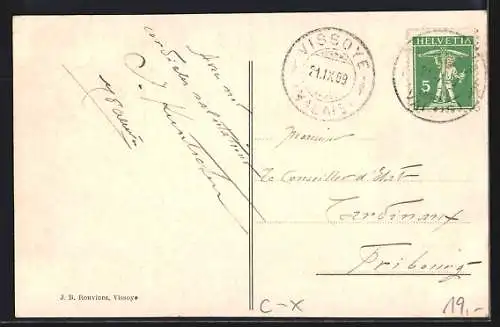 cordiales salutations
VISSOYE
21.IX.09
VALAIS
HELVETIA
5
Monsieur
Le Conseiller d'Etat
Cardinaux
Fribourg
J. B. Rouvinez, Vissoye
C-X
19,-